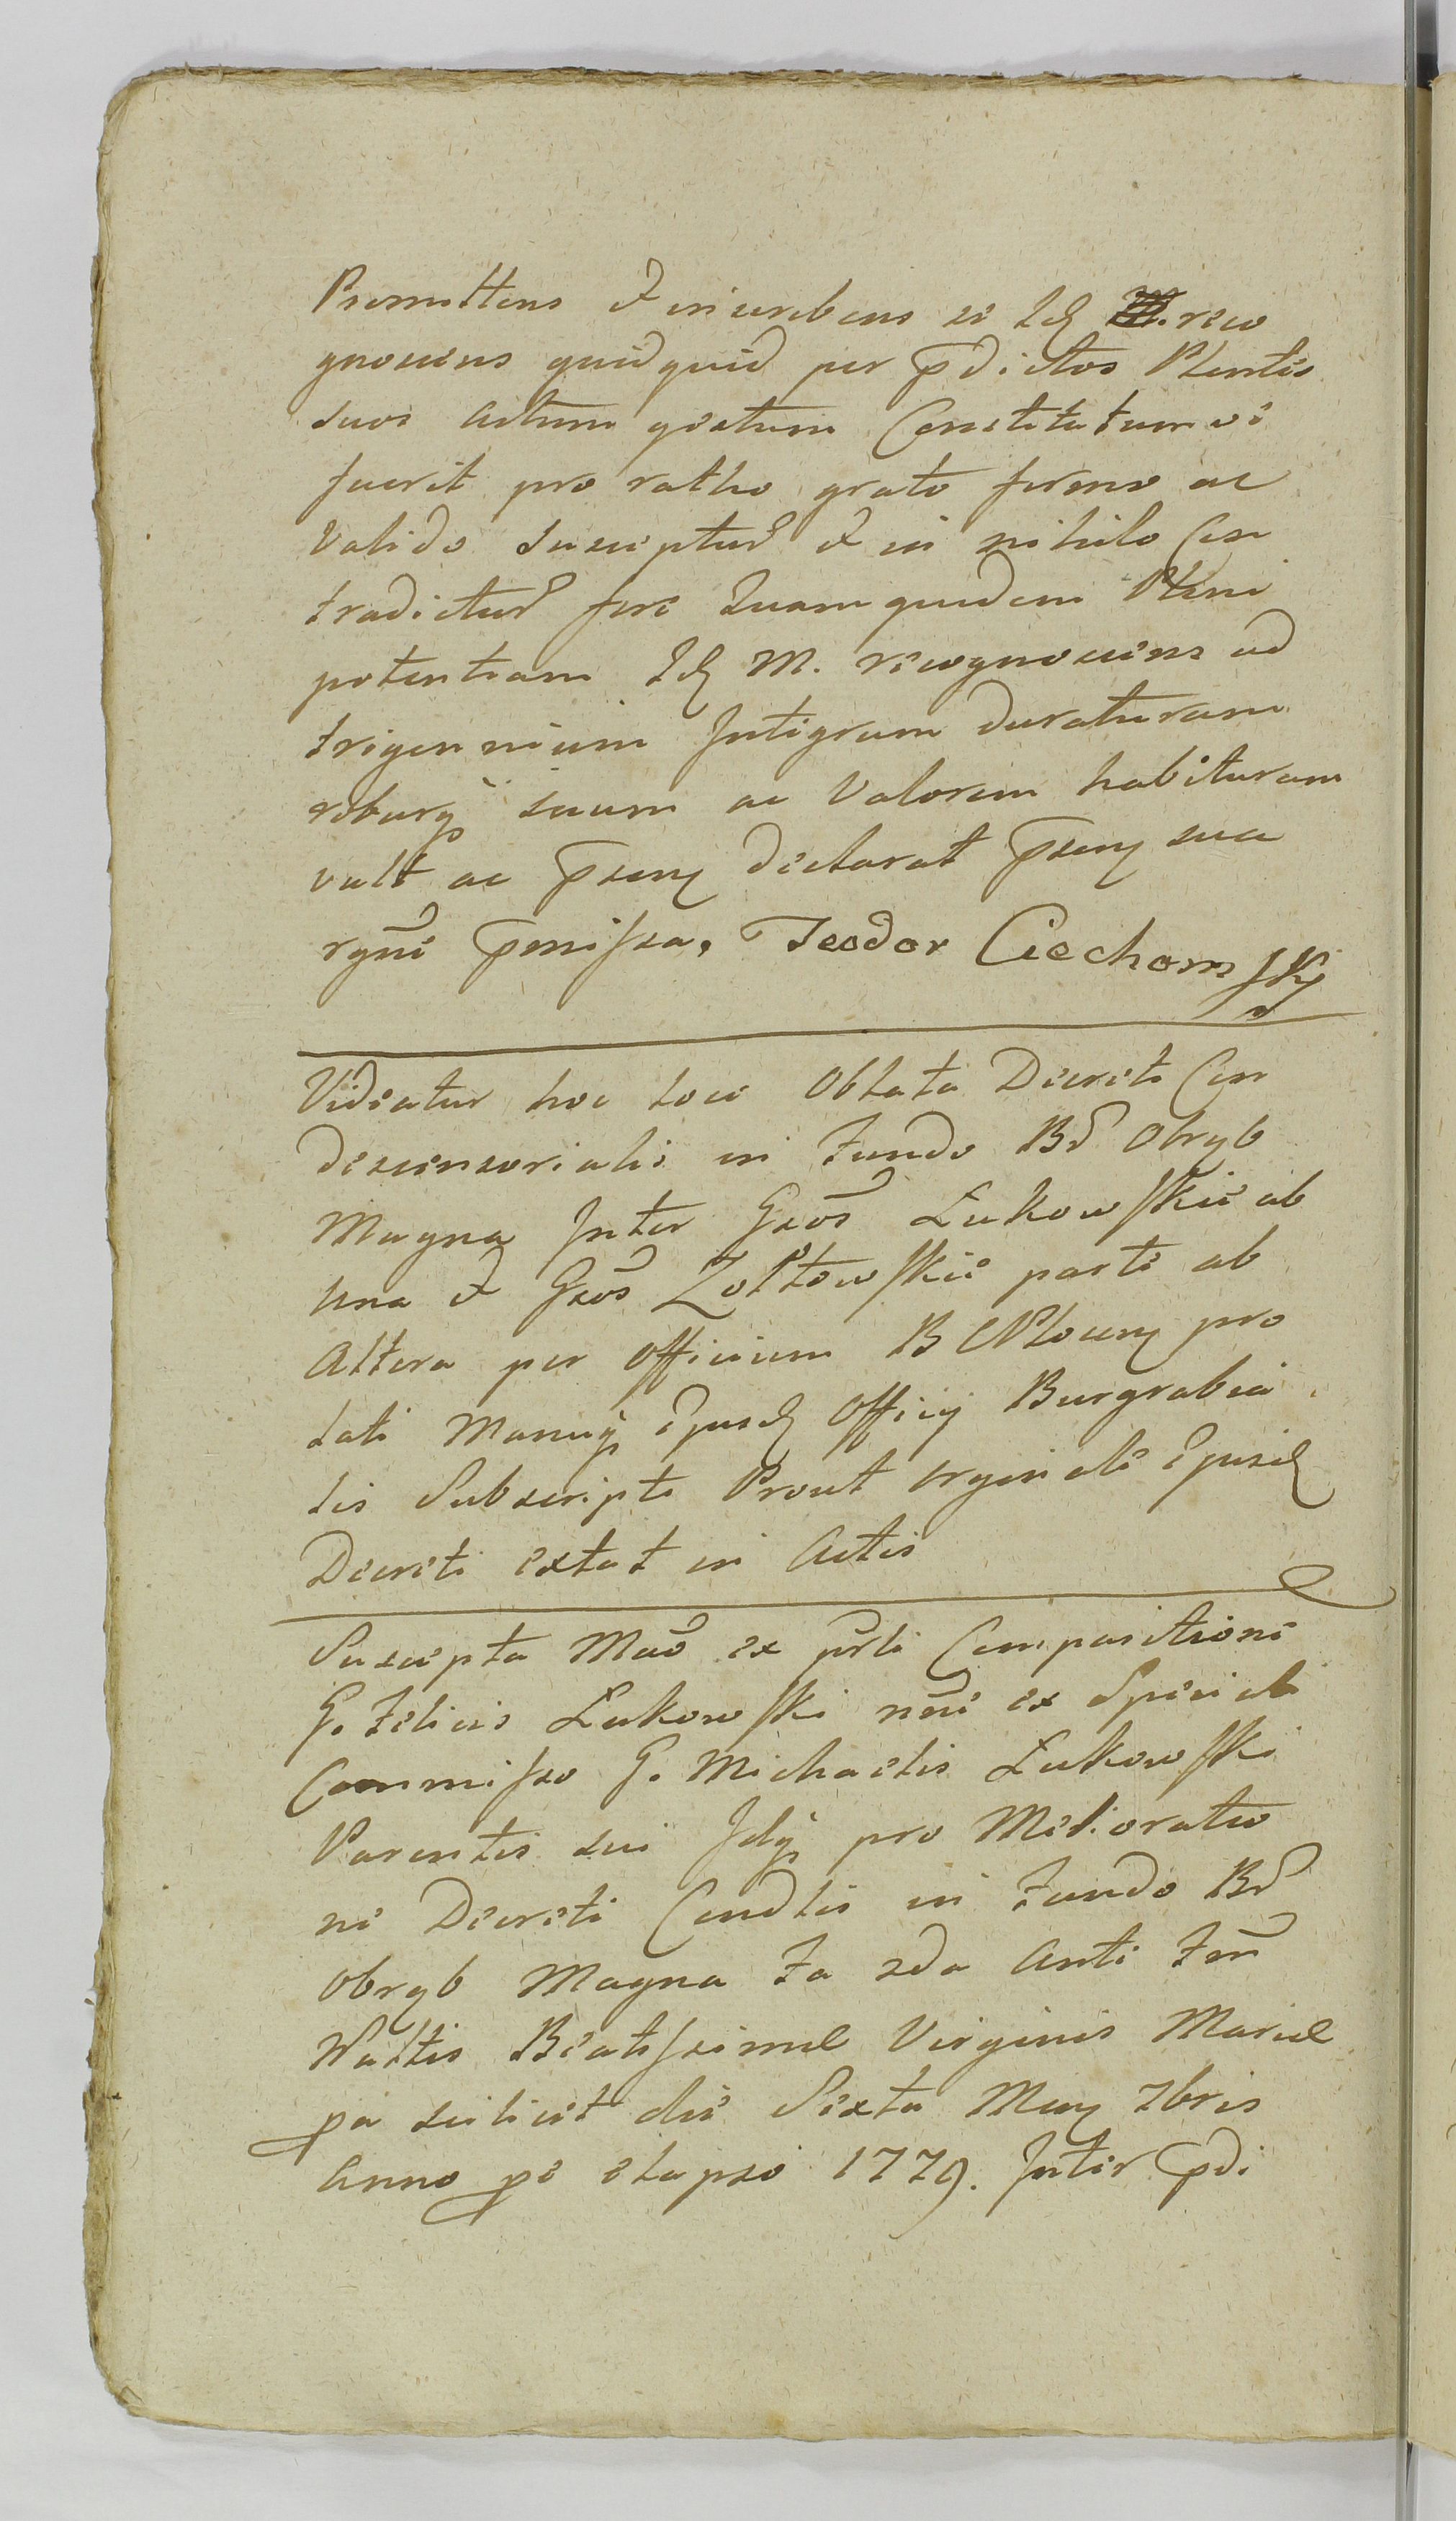 Promittens et inscribens se Id M. reco
gnoscens quidquid per pdictos Plentes
suos actum gestum Constitutumve
fuerit pro ratho grato firmo ac
Valido Suscepturu et in nihilo Con
tradicturu fore Quamquidem Pleni
potentiam Id M. recognoscens ad
trigennium Integrum duraturam
roburq suum ac Valorem habituram
vult ac psenq declarat psenq sua
rgnne pmissa, Teodor Ciechomsky
Videatur hoc loco Oblata Decreti Con
descensorialis in Fundo Br Obryb
Magna Inter Gsos Łukowskie ab
una et Gsos Zołtowskie parte ab
Altera per Officium B Plocen pro
lati Manuq Ejusd Officij Burgrabia
lis Subscripti Prout orginale Ejusd
Decreti extat in Actis
Suscepta Mao ex prli Comparitione
G. Felicis Łukowski nne ex Speciali
Commisso G. Michaelis Łukowski
Parentis sui Idq pro Melioratio
ne Decreti Condlis in Fundo Br
Obryb Magna Fa 2da Ante Fm
Nattis Beatissimae Virginis Mariae
pa scilicet die Sexta Mens 7bris
Anno pe elapso 1779. Inter pdi